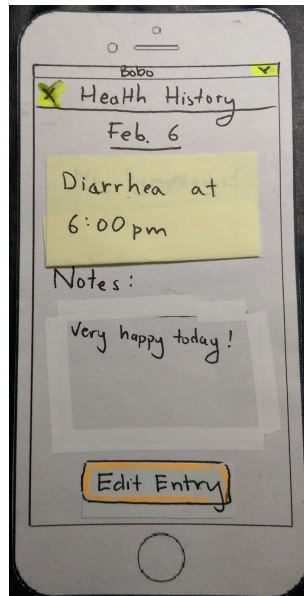 Bobo
X Health History
Feb. 6
Diarrhea at
6:00pm
Notes:
Very happy today!
Edit Entry